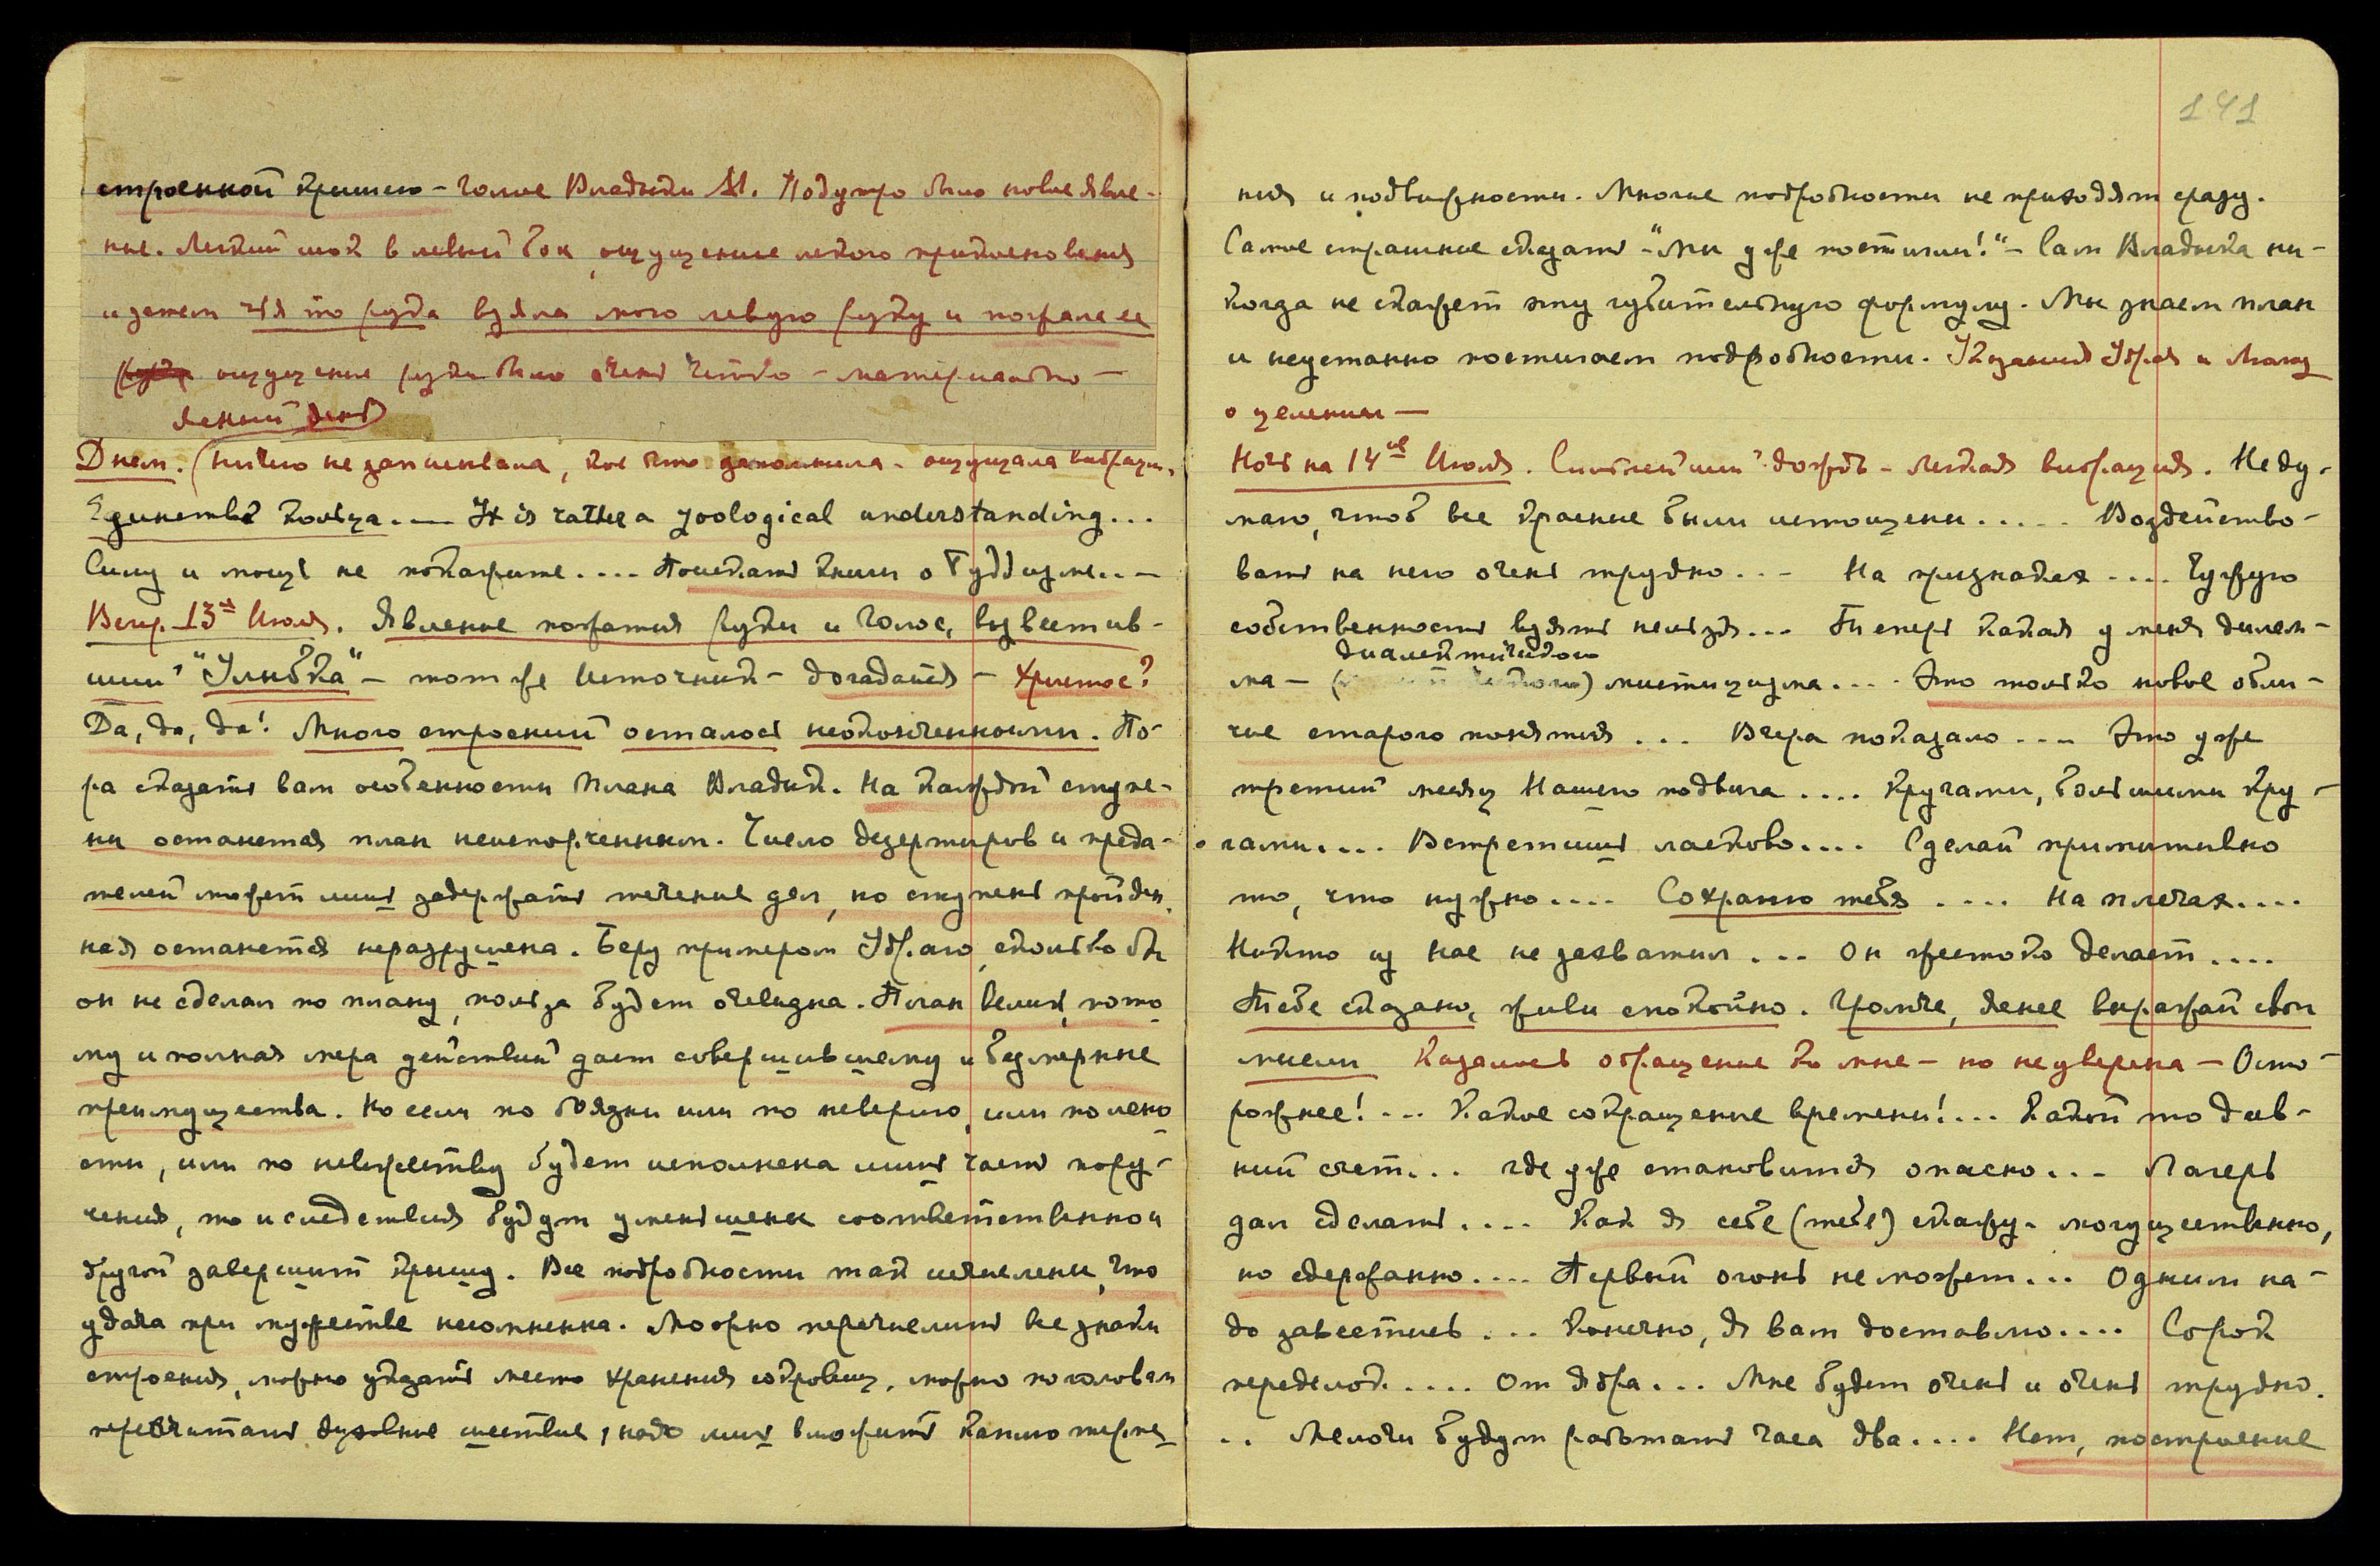 строенной крышею – голос Владыки М. Под утро было новое явле-
ние. Легкий шок в левый бок, ощущение легкого прикосновения
и затем чья то рука взяла мою левую руку и пожала ее
ощущение руки было очень четко – материально –
ясный день
Днем. (Ничего не записывала, кое что запомнила – ощущала вибрации,
Единство кольца. — It is rather a zoological understanding...
Силу и мощь не покажите.... Поискать книги о Буддизме...–
Вечер 13ое Июля. Явление пожатия руки и голос, возвестив-
ший "Улыбка" – тот же Источник – догадайся – Христос?
Да, да, да! Много строений осталось неоконченными. По-
ра сказать вам особенности Плана Владык. На каждой ступе-
ни останется план неиспорченным. Число дезертиров и преда-
телей может лишь задержать течение дел, но ступень пройден
ная останется неразрушена. Беру примером Удраю, сколько бы
он не сделал по плану, польза будет очевидна. План велик, пото
му и полная мера действий дает совершившему и безмерные
преимущества. Но если по боязни или по неверию, или по лено
сти, или по невежеству будет исполнена лишь часть пору-
чения, то и следствия будут уменьшены соответственно и
другой завершит крышу. Все подробности так исчислены, что
удача при мужестве несомненна. Можно перечислить все знаки
строения, можно указать место хранения сокровищ, можно по головам
пересчитать духовные шествие, надо лишь вложить каплю терпе
141
ния и подвижности. Многие подробности не приходят сразу.
Самое страшное сказать – "мы уже постигли!" – Сам Владыка ни-
когда не скажет эту губительную формулу. Мы знаем план
и неустанно постигаем подробности. Указания Удрая и
о целении —
Ночь на 14ое Июля. Сильнейший дождь – легкая вибрация. Не ду-
маю, чтоб все красные были истощены..... Воздейство-
вать на него очень трудно... На признаках.... Чужую
собственность взять нельзя... Теперь какая у меня дилем-
диалектического
ма – мистицизма.... Это только новое обли-
чие старого понятия... Вчера показало.... Это уже
третий месяц Нашего подвига.... Кругами, большими кру-
гами.... Встретишь ласково.... Сделай примитивно
то, что нужно.... Сохраню тебя.... На плечах....
Никто из нас не захватил... Он жестоко делает....
Тебе сказано, живи спокойно. Громче, яснее выражай свои
мысли Казалось обращение ко мне – но не уверена – Осто-
рожнее!... Какое сокращение времени!... Какой то дав-
ний счет... где уже становится опасно... Лагерь
дал сделать.... Как я себе (тебе) скажу – могущественно,
но сдержанно.... Первый огонь не может... Одним на-
до завестись... Конечно, я вам доставлю.... Сорок
переделок..... От ядра... Мне будет очень и очень трудно.
.. Мелочи будут работать часа два.... Нет, построение